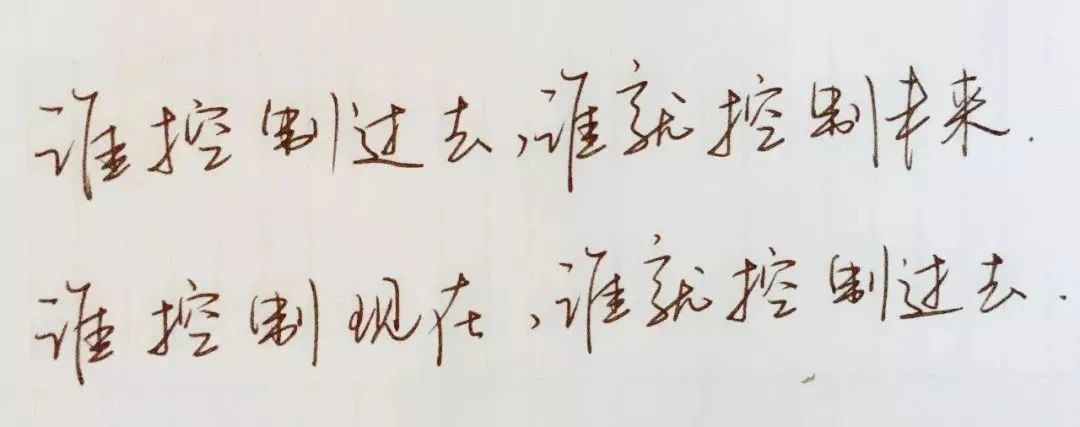 谁控制过去,谁就控制未来.
谁控制现在,谁就控制过去.